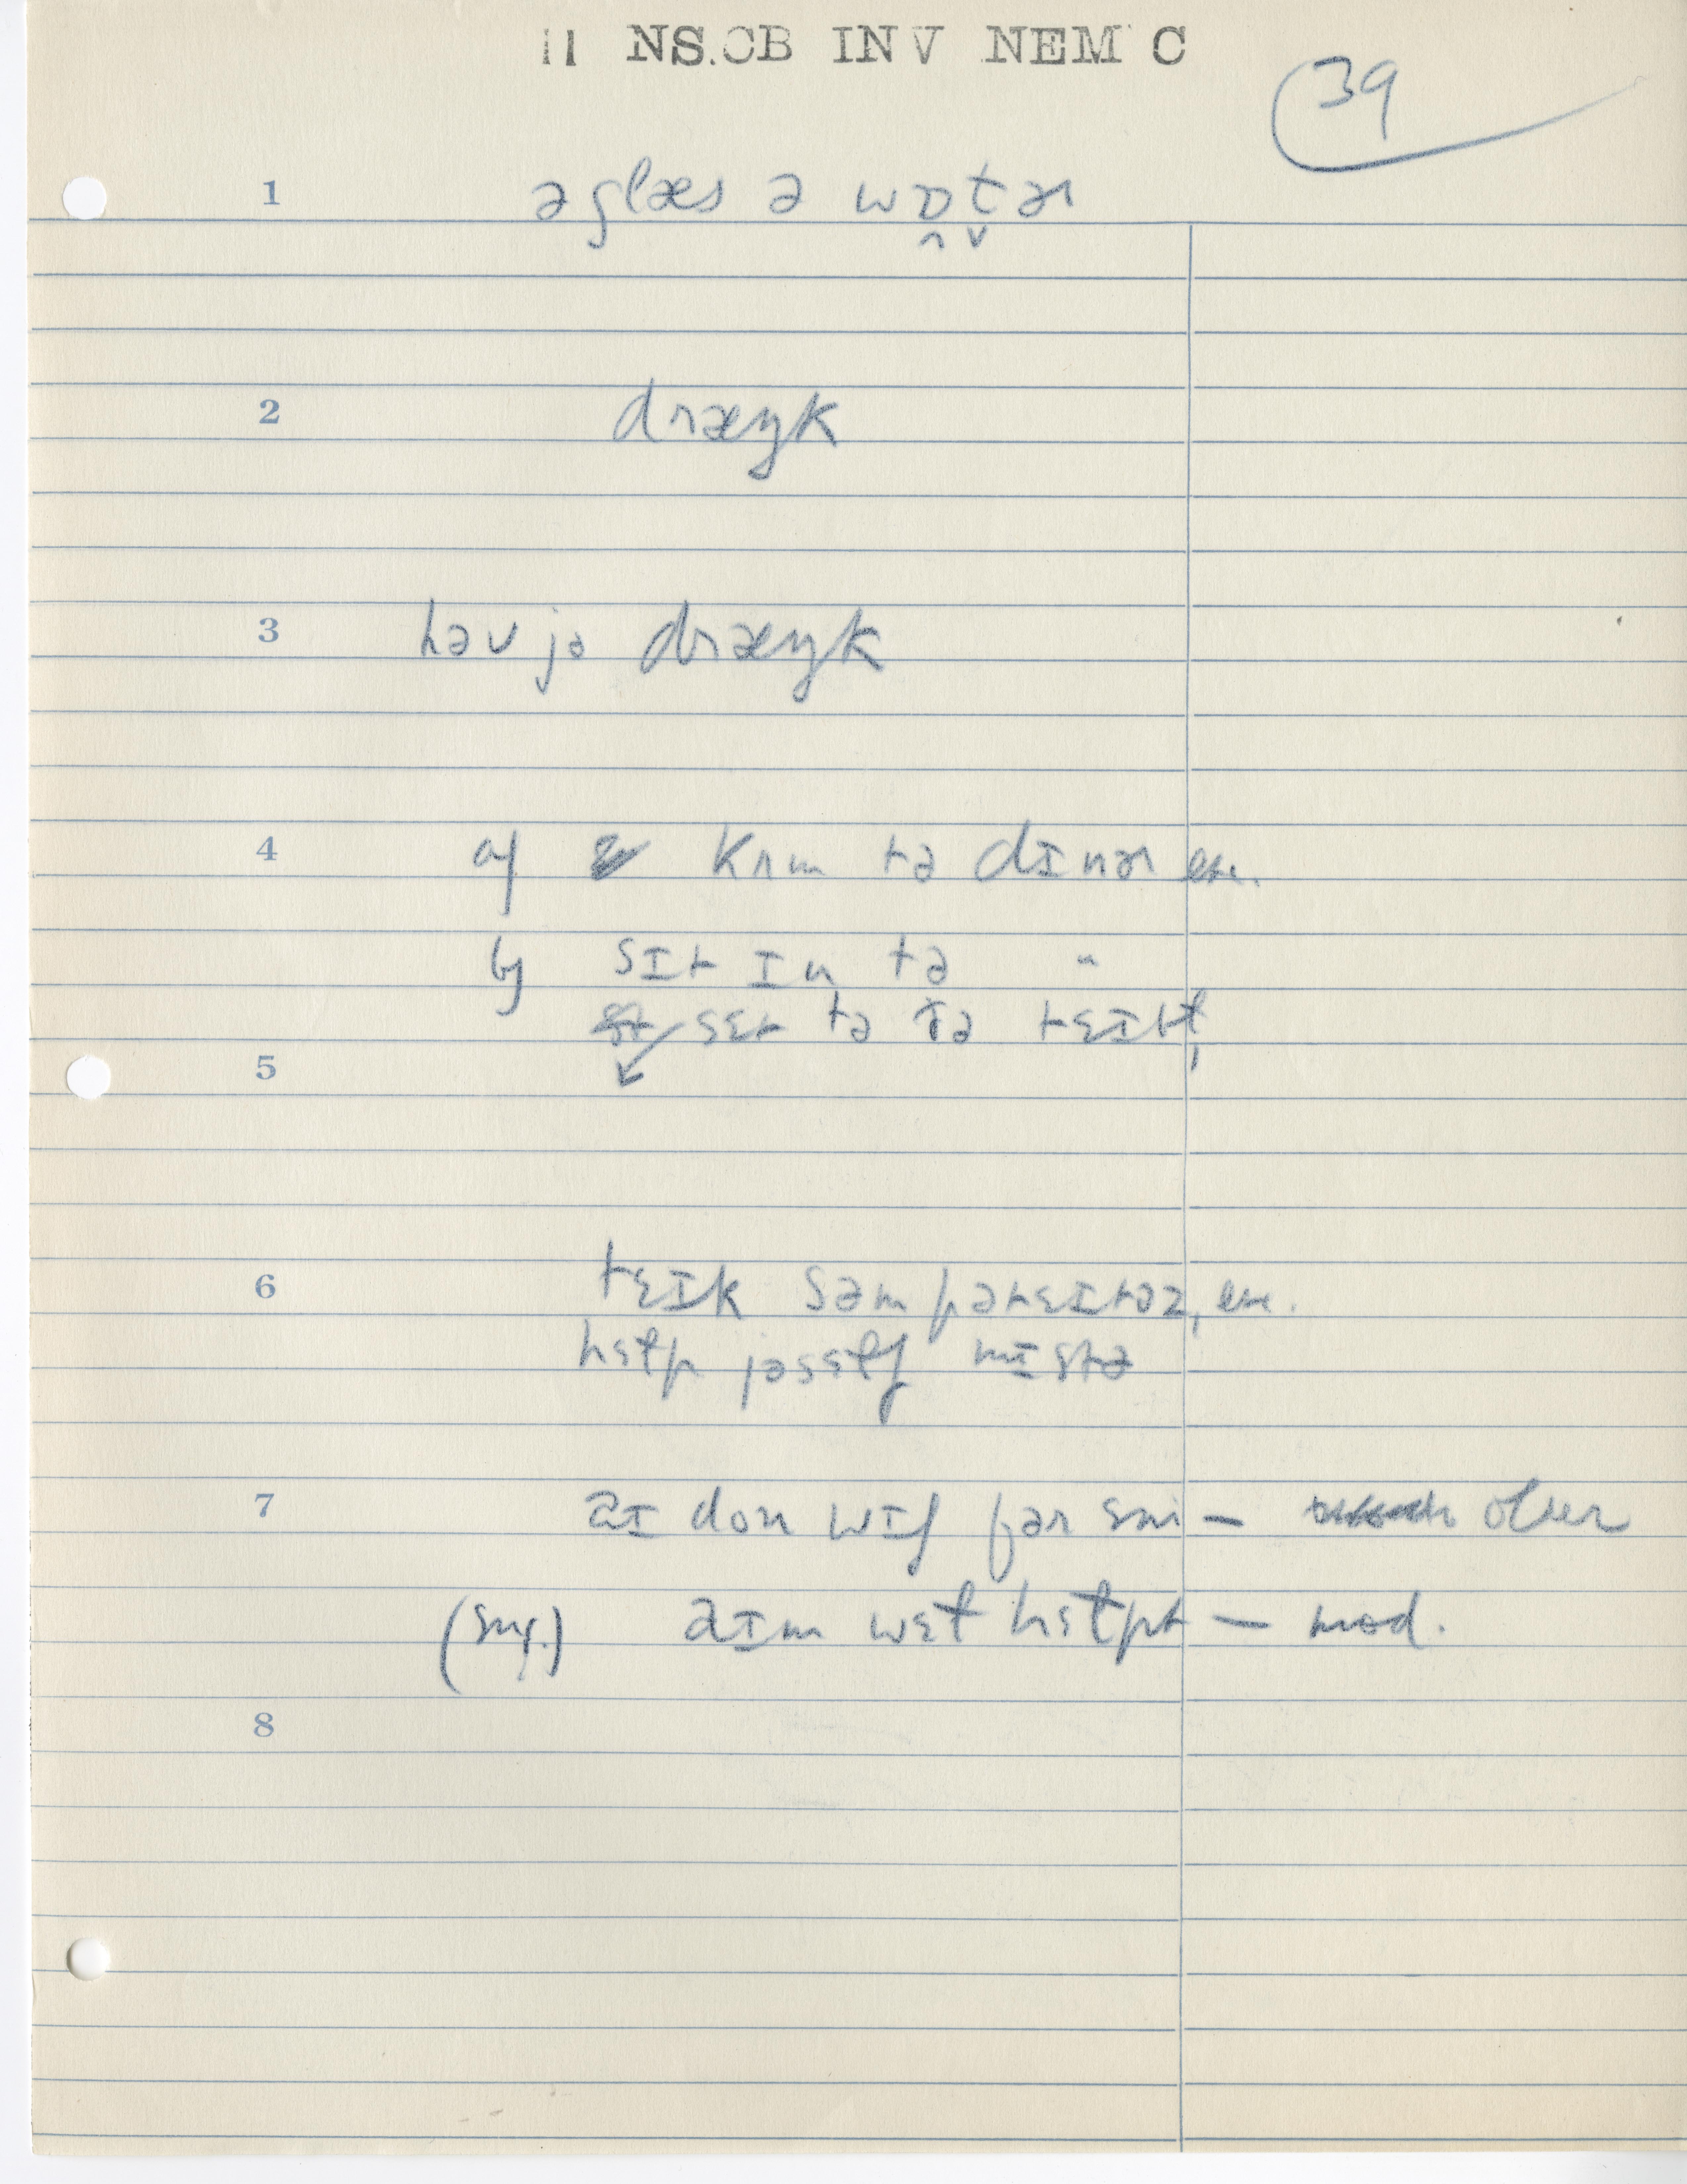 11 NS.CB INV NEM C
39
1 ə glæs ə wɒt̬ɚ
2 dræŋk
3 həv jə dræŋk
4 a) kʌm tə dɪnɚ etc.
b) sɪt ɪn tə "
sɛt tə ðə tɛɪbɫ,
5
6 tɛɪk səm pətɛɪtəz, etc.
hɛɫp jəsɛɫf mɪstə
7 aɪ don wɪʃ fər ɛni — older
(sug.) aɪm wɛɫ hɛɫpt — mod.
8